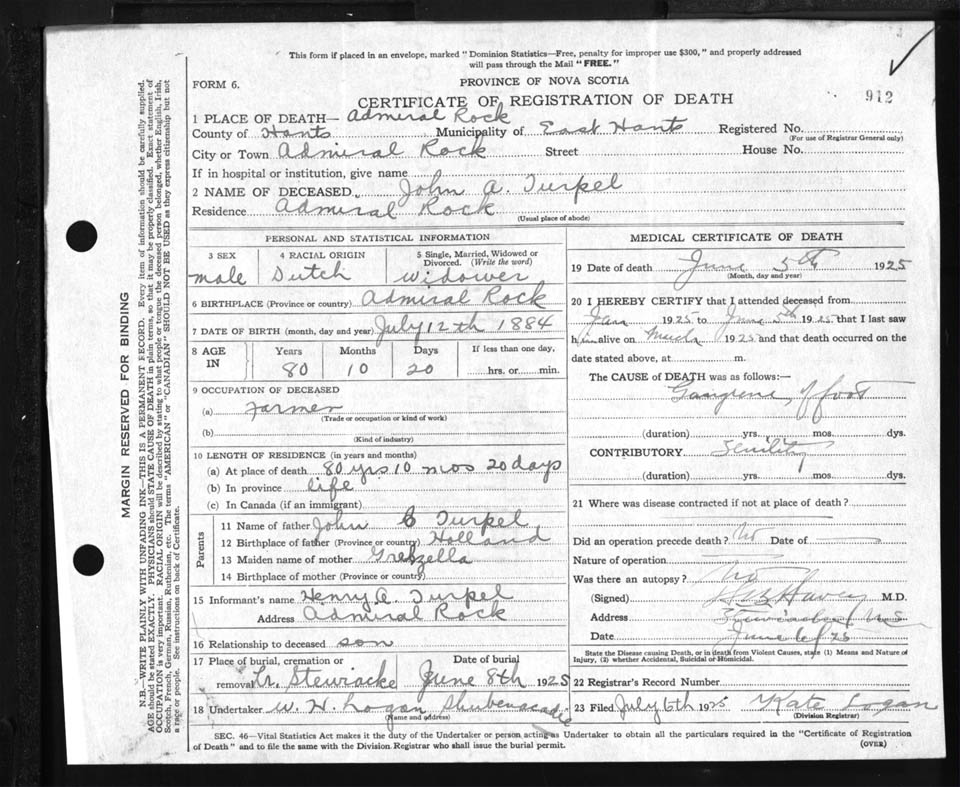 This form if placed in an envelope, marked "Dominion Statistics—Free, penalty for improper use $300," and properly addressed
will pass through the Mail "FREE."
FORM 6.
PROVINCE OF NOVA SCOTIA
912
CERTIFICATE OF REGISTRATION OF DEATH
1 PLACE OF DEATH— Admiral Rock
County of Hants Municipality of East Hants Registered No.
(For use of Registrar General only)
City or Town Admiral Rock Street House No.
If in hospital or institution, give name
2 NAME OF DECEASED John A. Turpel
Residence Admiral Rock
(Usual place of abode)
PERSONAL AND STATISTICAL INFORMATION
3 SEX 4 RACIAL ORIGIN 5 Single, Married, Widowed or
Divorced. (Write the word)
male Dutch widower
6 BIRTHPLACE (Province or country) Admiral Rock
7 DATE OF BIRTH (month, day and year) July 12th 1884
8 AGE IN Years Months Days If less than one day,
80 10 20 hrs. or min.
9 OCCUPATION OF DECEASED
(a) Farmer
(Trade or occupation or kind of work)
(b)
(Kind of industry)
10 LENGTH OF RESIDENCE (in years and months)
(a) At place of death 80 yrs 10 mos 20 days
(b) In province life
(c) In Canada (if an immigrant)
Parents
11 Name of father John C Turpel
12 Birthplace of father (Province or country) Holland
13 Maiden name of mother Gretzella
14 Birthplace of mother (Province or country)
15 Informant's name Henry A. Turpel
Address Admiral Rock
16 Relationship to deceased son
17 Place of burial, cremation or Date of burial
removal Lr. Stewiacke June 8th 1925
18 Undertaker W. H. Logan Shubenacadie
(Name and address)
MEDICAL CERTIFICATE OF DEATH
19 Date of death June 5th 1925
(Month, day and year)
20 I HEREBY CERTIFY that I attended deceased from
Jan 1925 to June 5th 1925 that I last saw
him alive on March 1925 and that death occurred on the
date stated above, at m.
The CAUSE of DEATH was as follows:—
Gangrene of foot
(duration) yrs. mos. dys.
CONTRIBUTORY Senility
(duration) yrs. mos. dys.
21 Where was disease contracted if not at place of death?
Did an operation precede death? No Date of
Nature of operation
Was there an autopsy? No
(Signed) M.D.
Address Stewiacke N.S.
Date June 6/25
State the Disease causing Death, or in death from Violent Causes, state (1) Means and Nature of
Injury, (2) whether Accidental, Suicidal or Homicidal.
22 Registrar's Record Number
23 Filed July 6th 1925 Kate Logan
(Division Registrar)
SEC. 46—Vital Statistics Act makes it the duty of the Undertaker or person acting as Undertaker to obtain all the particulars required in the "Certificate of Registration
of Death" and to file the same with the Division Registrar who shall issue the burial permit.
(OVER)
MARGIN RESERVED FOR BINDING
N.B.—WRITE PLAINLY WITH UNFADING INK—THIS IS A PERMANENT RECORD. Every item of information should be carefully supplied.
AGE should be stated EXACTLY. PHYSICIANS should STATE CAUSE OF DEATH in plain terms, so that it may be properly classified. Exact statement of
OCCUPATION is very important. RACIAL ORIGIN will be described by stating to what people or tongue the deceased person belonged, whether English, Irish,
Scotch, French, German, Russian, Ruthenian, etc. The terms "AMERICAN" or "CANADIAN" SHOULD NOT BE USED as they express citizenship but not
a race or people. See instructions on back of Certificate.